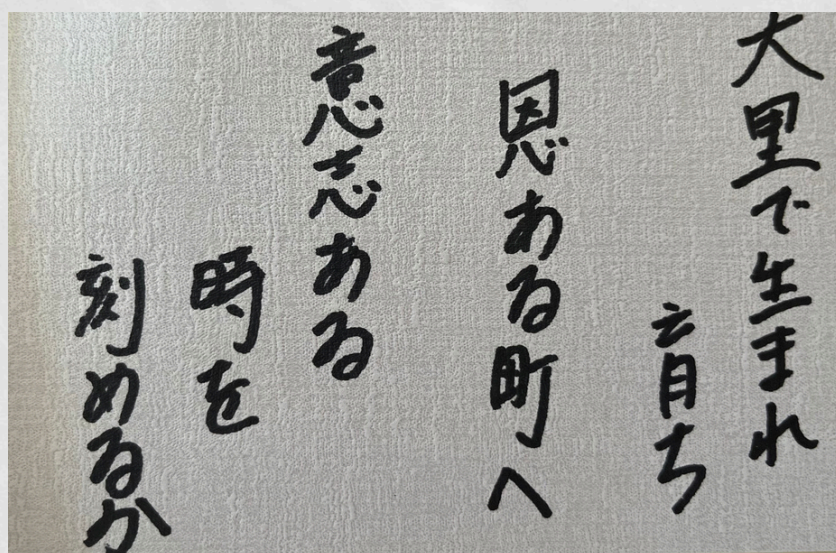 大里で生まれ
育ち
恩ある町へ
意志ある
時を
刻めるか